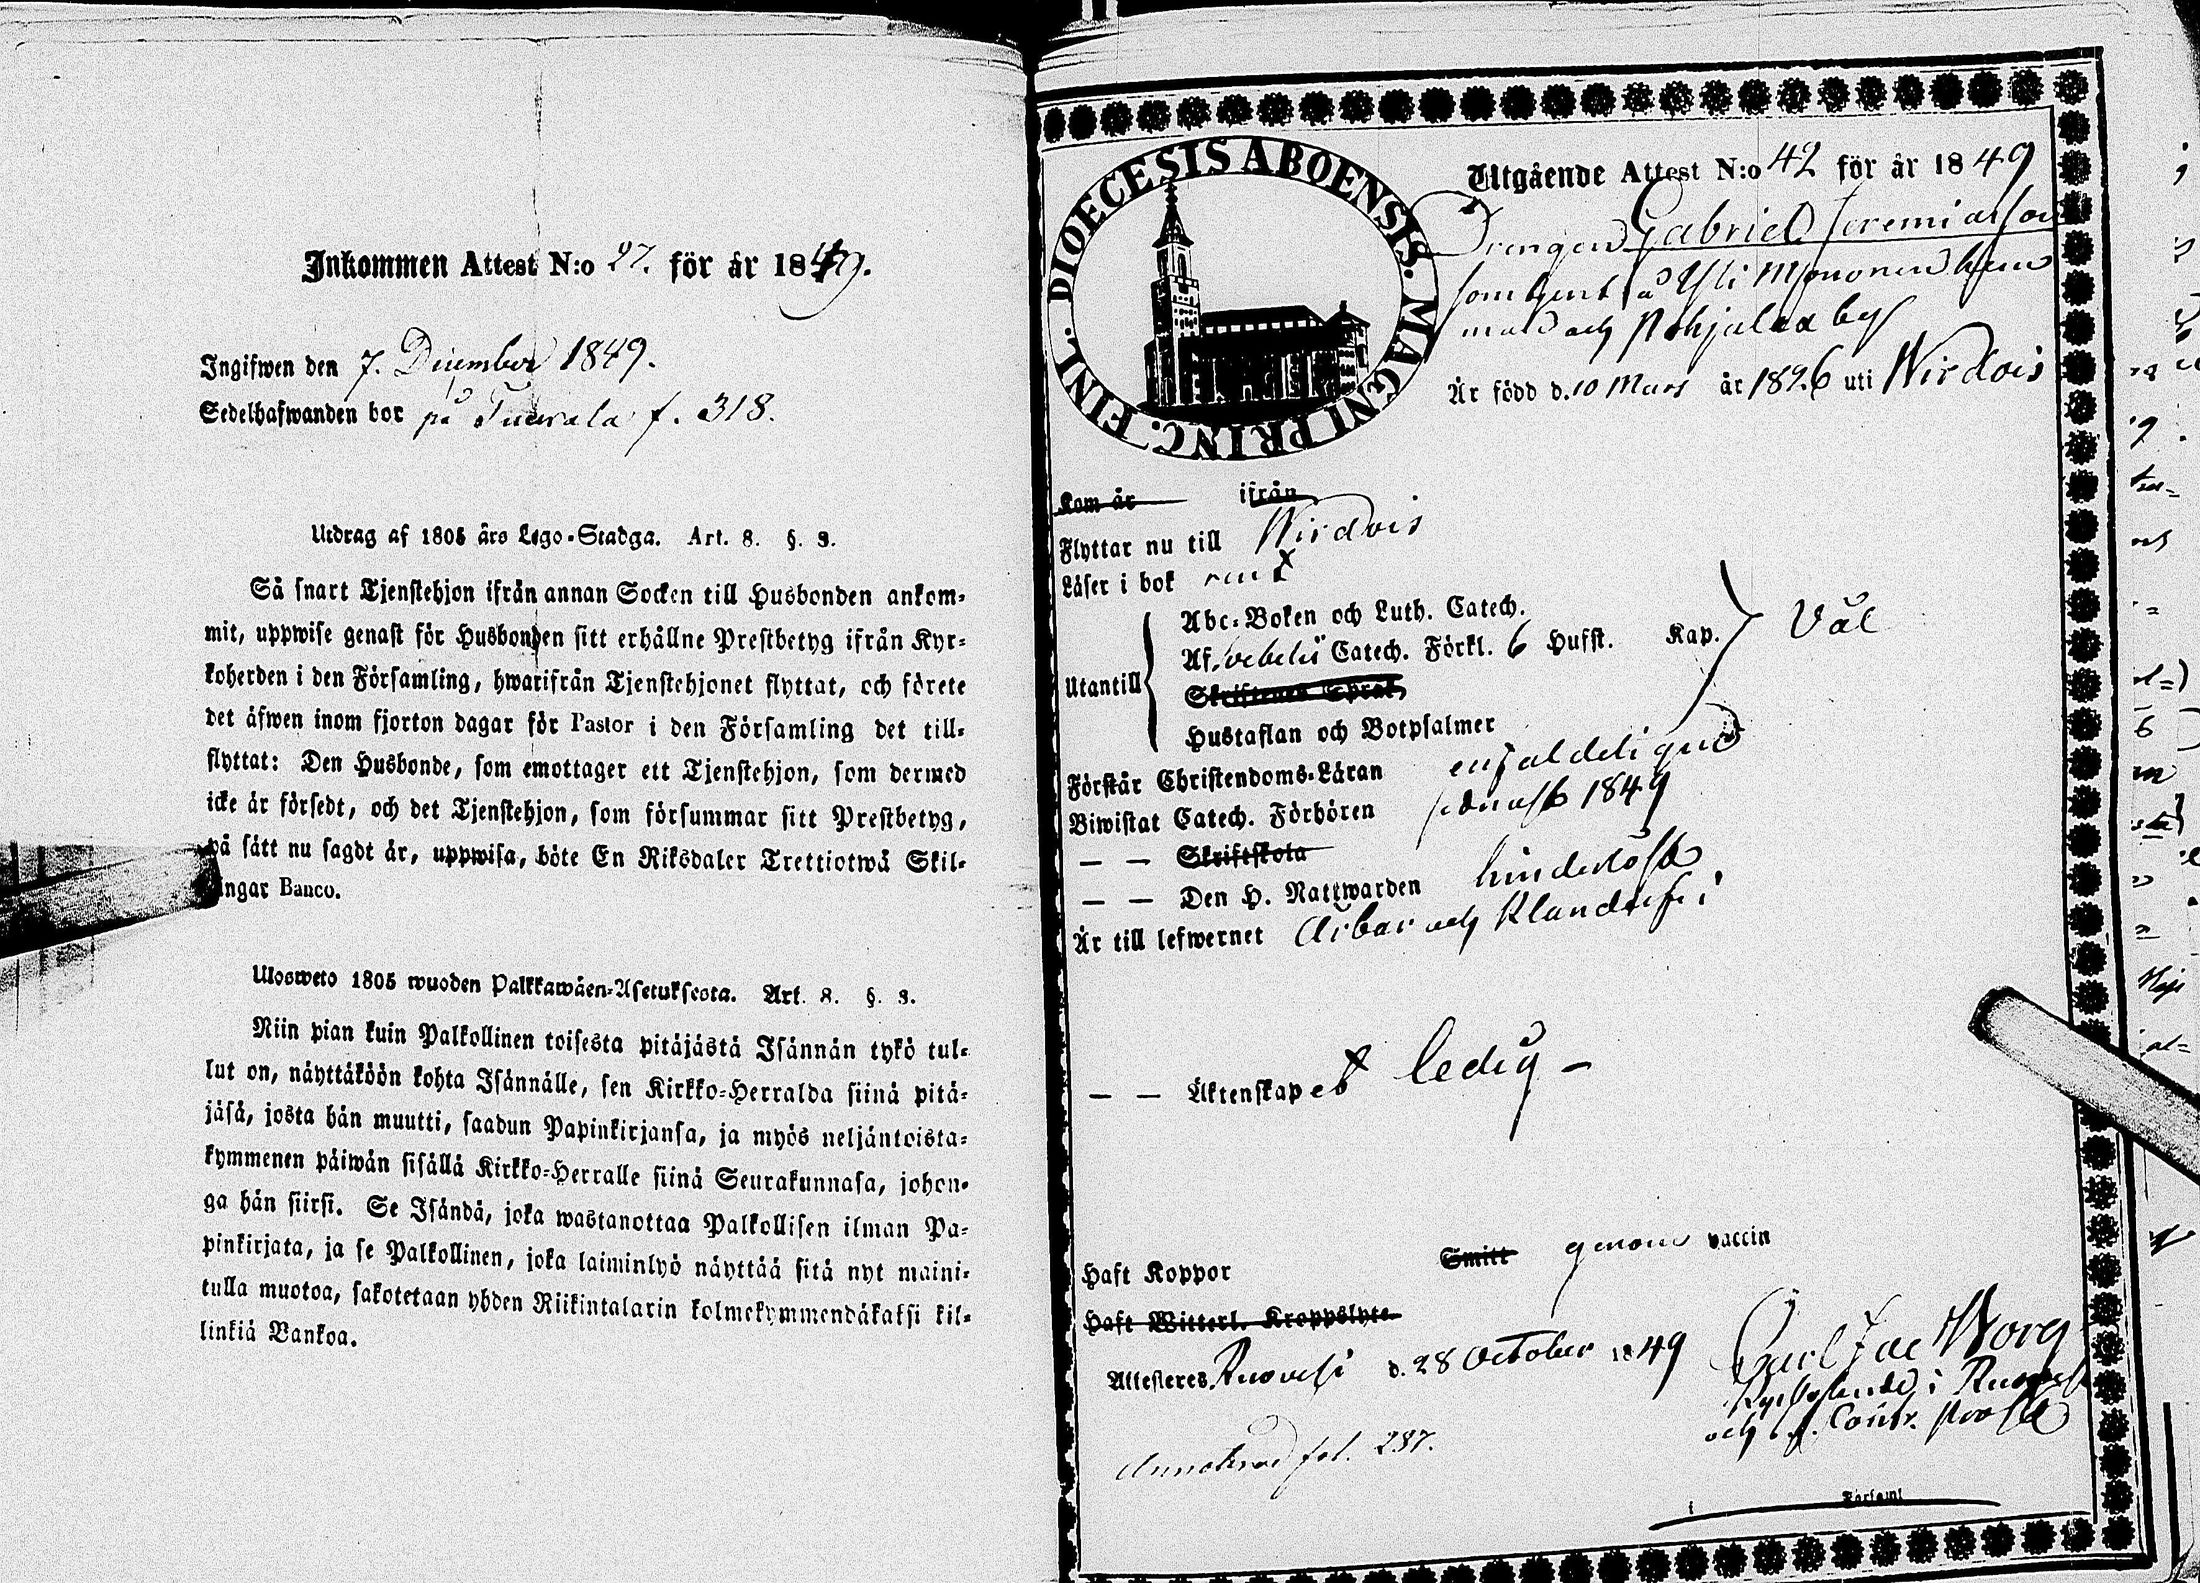 Inkommen Attest N:o 27. för år 1849.
Ingifwen den 7. December 1849.
Sedelhafwanden bor på Tuurala f. 318.
Utdrag af 1805 års Lego-Stadga. Art. 8. §. 3.
Så snart Tjenstehjon ifrån annan Socken till Husbonden ankom-
mit, uppwise genast för Husbonden sitt erhållne Prestbetyg ifrån Kyr-
koherden i den Församling, hwarifrån Tjenstehjonet flyttat, och förete
det äfwen inom fjorton dagar för Pastor i den Församling det till-
flyttat: Den Husbonde, som emottager ett Tjenstehjon, som dermed
icke är försedt, och det Tjenstehjon, som försummar sitt Prestbetyg,
på sätt nu sagdt är, uppwisa, böte En Riksdaler Trettiotwå Skil-
ingar Banco.
Ulosweto 1805 wuoden Palkkawäen-Asetuksesta. Art. 8. §. 3.
Niin pian kuin Palkollinen toisesta pitäjästä Isännän tykö tul-
lut on, näyttäköön kohta Isännälle, sen Kirkko-Herralda siinä pitä-
jäsä, josta hän muutti, saadun Papinkirjansa, ja myös neljäntoista-
kymmenen päiwän sisällä Kirkko-Herralle siinä Seurakunnasa, johon-
ga hän siirsi. Se Isändä, joka wastanottaa Palkollisen ilman Pa-
pinkirjata, ja se Palkollinen, joka laiminlyö näyttää sitä nyt maini-
tulla muotoa, sakotetaan yhden Riikintalarin kolmekymmendäkaksi kil-
linkiä Bankoa.
DIOECESIS ABOENSIS. MAGNI PRINC. FINL.
Utgående Attest N:o 42 för år 1849
Drengen Gabriel Jeremiasson
som tjent på Yli Mononen hem
man och Pohjalaa by
Är född d. 10 Mars år 1826 uti Wirdois
Kom år ifrån
Flyttar nu till Wirdois
Läser i bok rent
Utantill
Abc-Boken och Luth. Catech.
Af Svebelii Catech. Förkl. 6 Hufst. Kap. Väl
Skriftenes Språk
Hustaflan och Botpsalmer
Förstår Christendoms-Läran enfaldeligen
Biwistat Catech. Förhören sednast 1849
— — Skriftskola
— — Den H. Nattwarden hinderlöst
Är till lefwernet ärbar och klanderfri
— — Äktenskapet ledig -
Haft Koppor Smitt genom vaccin
Haft Witterl. Kroppslyte
Attesteres Ruovesi d. 28 October 1849 Carl Jac Worg
Kyrkoherde i Ruovesi
och Contr. Prost
Annoterad fol. 287.
i Församl